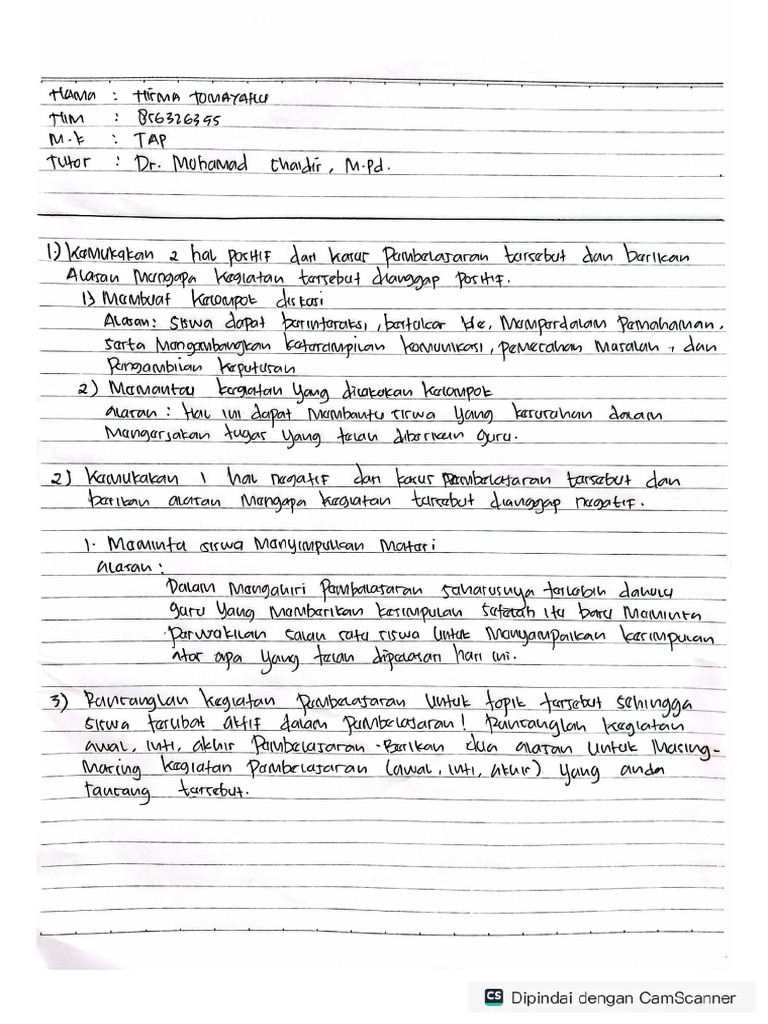 Nama : Hirma Tomayahu
Nim : 856326395
M.k : TAP
Tutor : Dr. Mohamad Chaidir, M.Pd.
1.) Kemukakan 2 hal positif dari kasus Pembelajaran tersebut dan berikan
Alasan Mengapa kegiatan tersebut dianggap positif.
1) Membuat kelompok diskusi
Alasan: siswa dapat berinteraksi, bertukar ide, Memperdalam Pemahaman,
serta Mengembangkan keterampilan komunikasi, pemecahan Masalah, dan
Pengambilan keputusan
2) Memantau kegiatan yang dilakukan kelompok
alasan : Hal ini dapat Membantu siswa yang kesusahan dalam
Mengerjakan tugas yang telah diberikan guru.
2) Kemukakan 1 hal negatif dari kasus pembelajaran tersebut dan
berikan alasan Mengapa kegiatan tersebut dianggap negatif.
1. Meminta siswa Menyimpulkan Materi
alasan :
Dalam Mengahiri Pembelajaran seharusnya terlebih dahulu
guru yang Memberikan kesimpulan setelah itu baru Meminta
Perwakilan salah satu siswa untuk Menyampaikan kesimpulan
Ator apa yang telah dipelajari hari ini.
3) Rancanglah kegiatan Pembelajaran untuk topik tersebut sehingga
siswa terlibat aktif dalam Pembelajaran! Rancanglah kegiatan
awal, inti, akhir Pembelajaran. Berikan dua alasan untuk Masing-
Masing kegiatan Pembelajaran (awal, inti, akhir) yang anda
rancang tersebut.
CS Dipindai dengan CamScanner